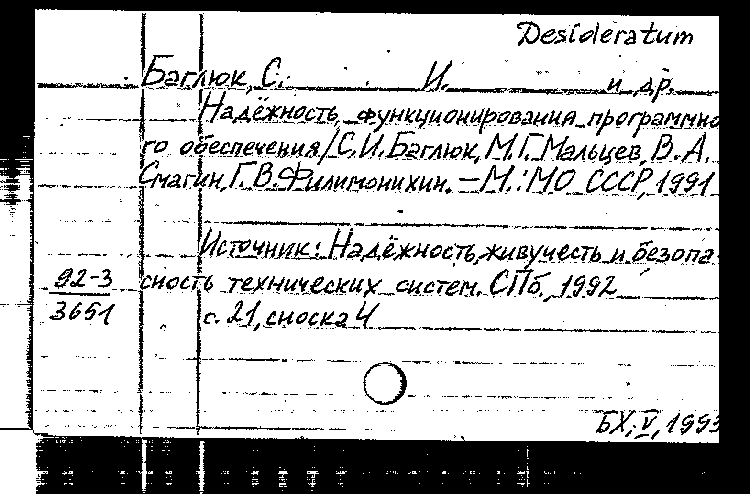 Desideratum
Баглюк, С. И. и др.
Надёжность функционирования программно
го обеспечения/С.И.Баглюк, М.Г.Мальцев, В.А.
Смагин, Г.В.Филимонихин. – М.: МО СССР, 1991
Источник: Надёжность, живучесть и безопа-
92-3 сность технических систем. СПб., 1992
3651 с. 21, сноска 4
БХ, V, 1993